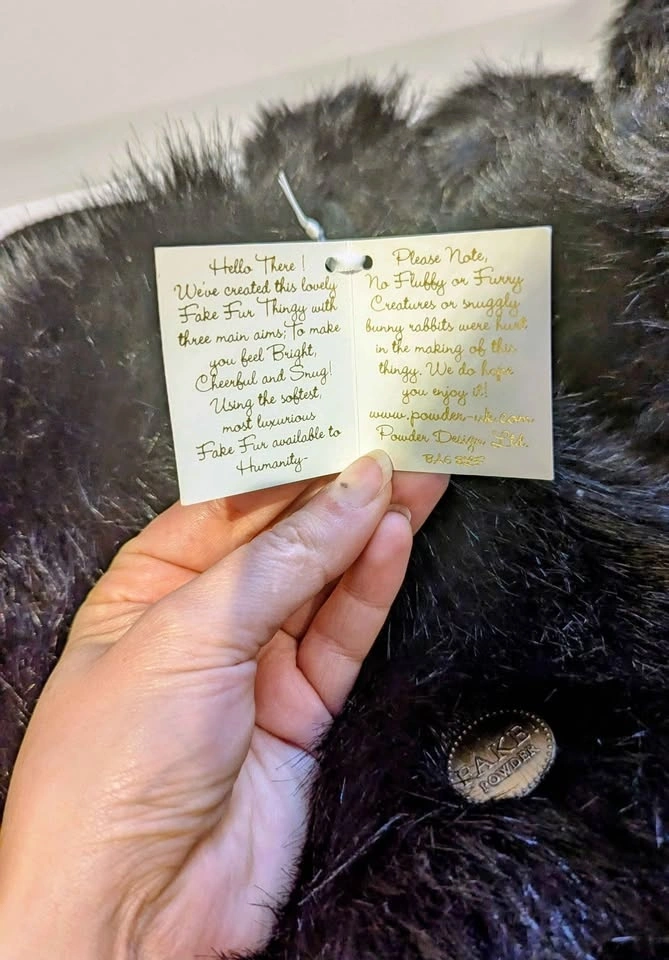 Hello There !
We've created this lovely
Fake Fur Thingy with
three main aims; To make
you feel Bright,
Cheerful and Snug!
Using the softest,
most luxurious
Fake Fur available to
Humanity-
Please Note,
No Fluffy or Furry
Creatures or snuggly
bunny rabbits were hurt
in the making of this
thingy. We do hope
you enjoy it!
www.powder-uk.com
Powder Design Ltd.
FAKE
POWDER